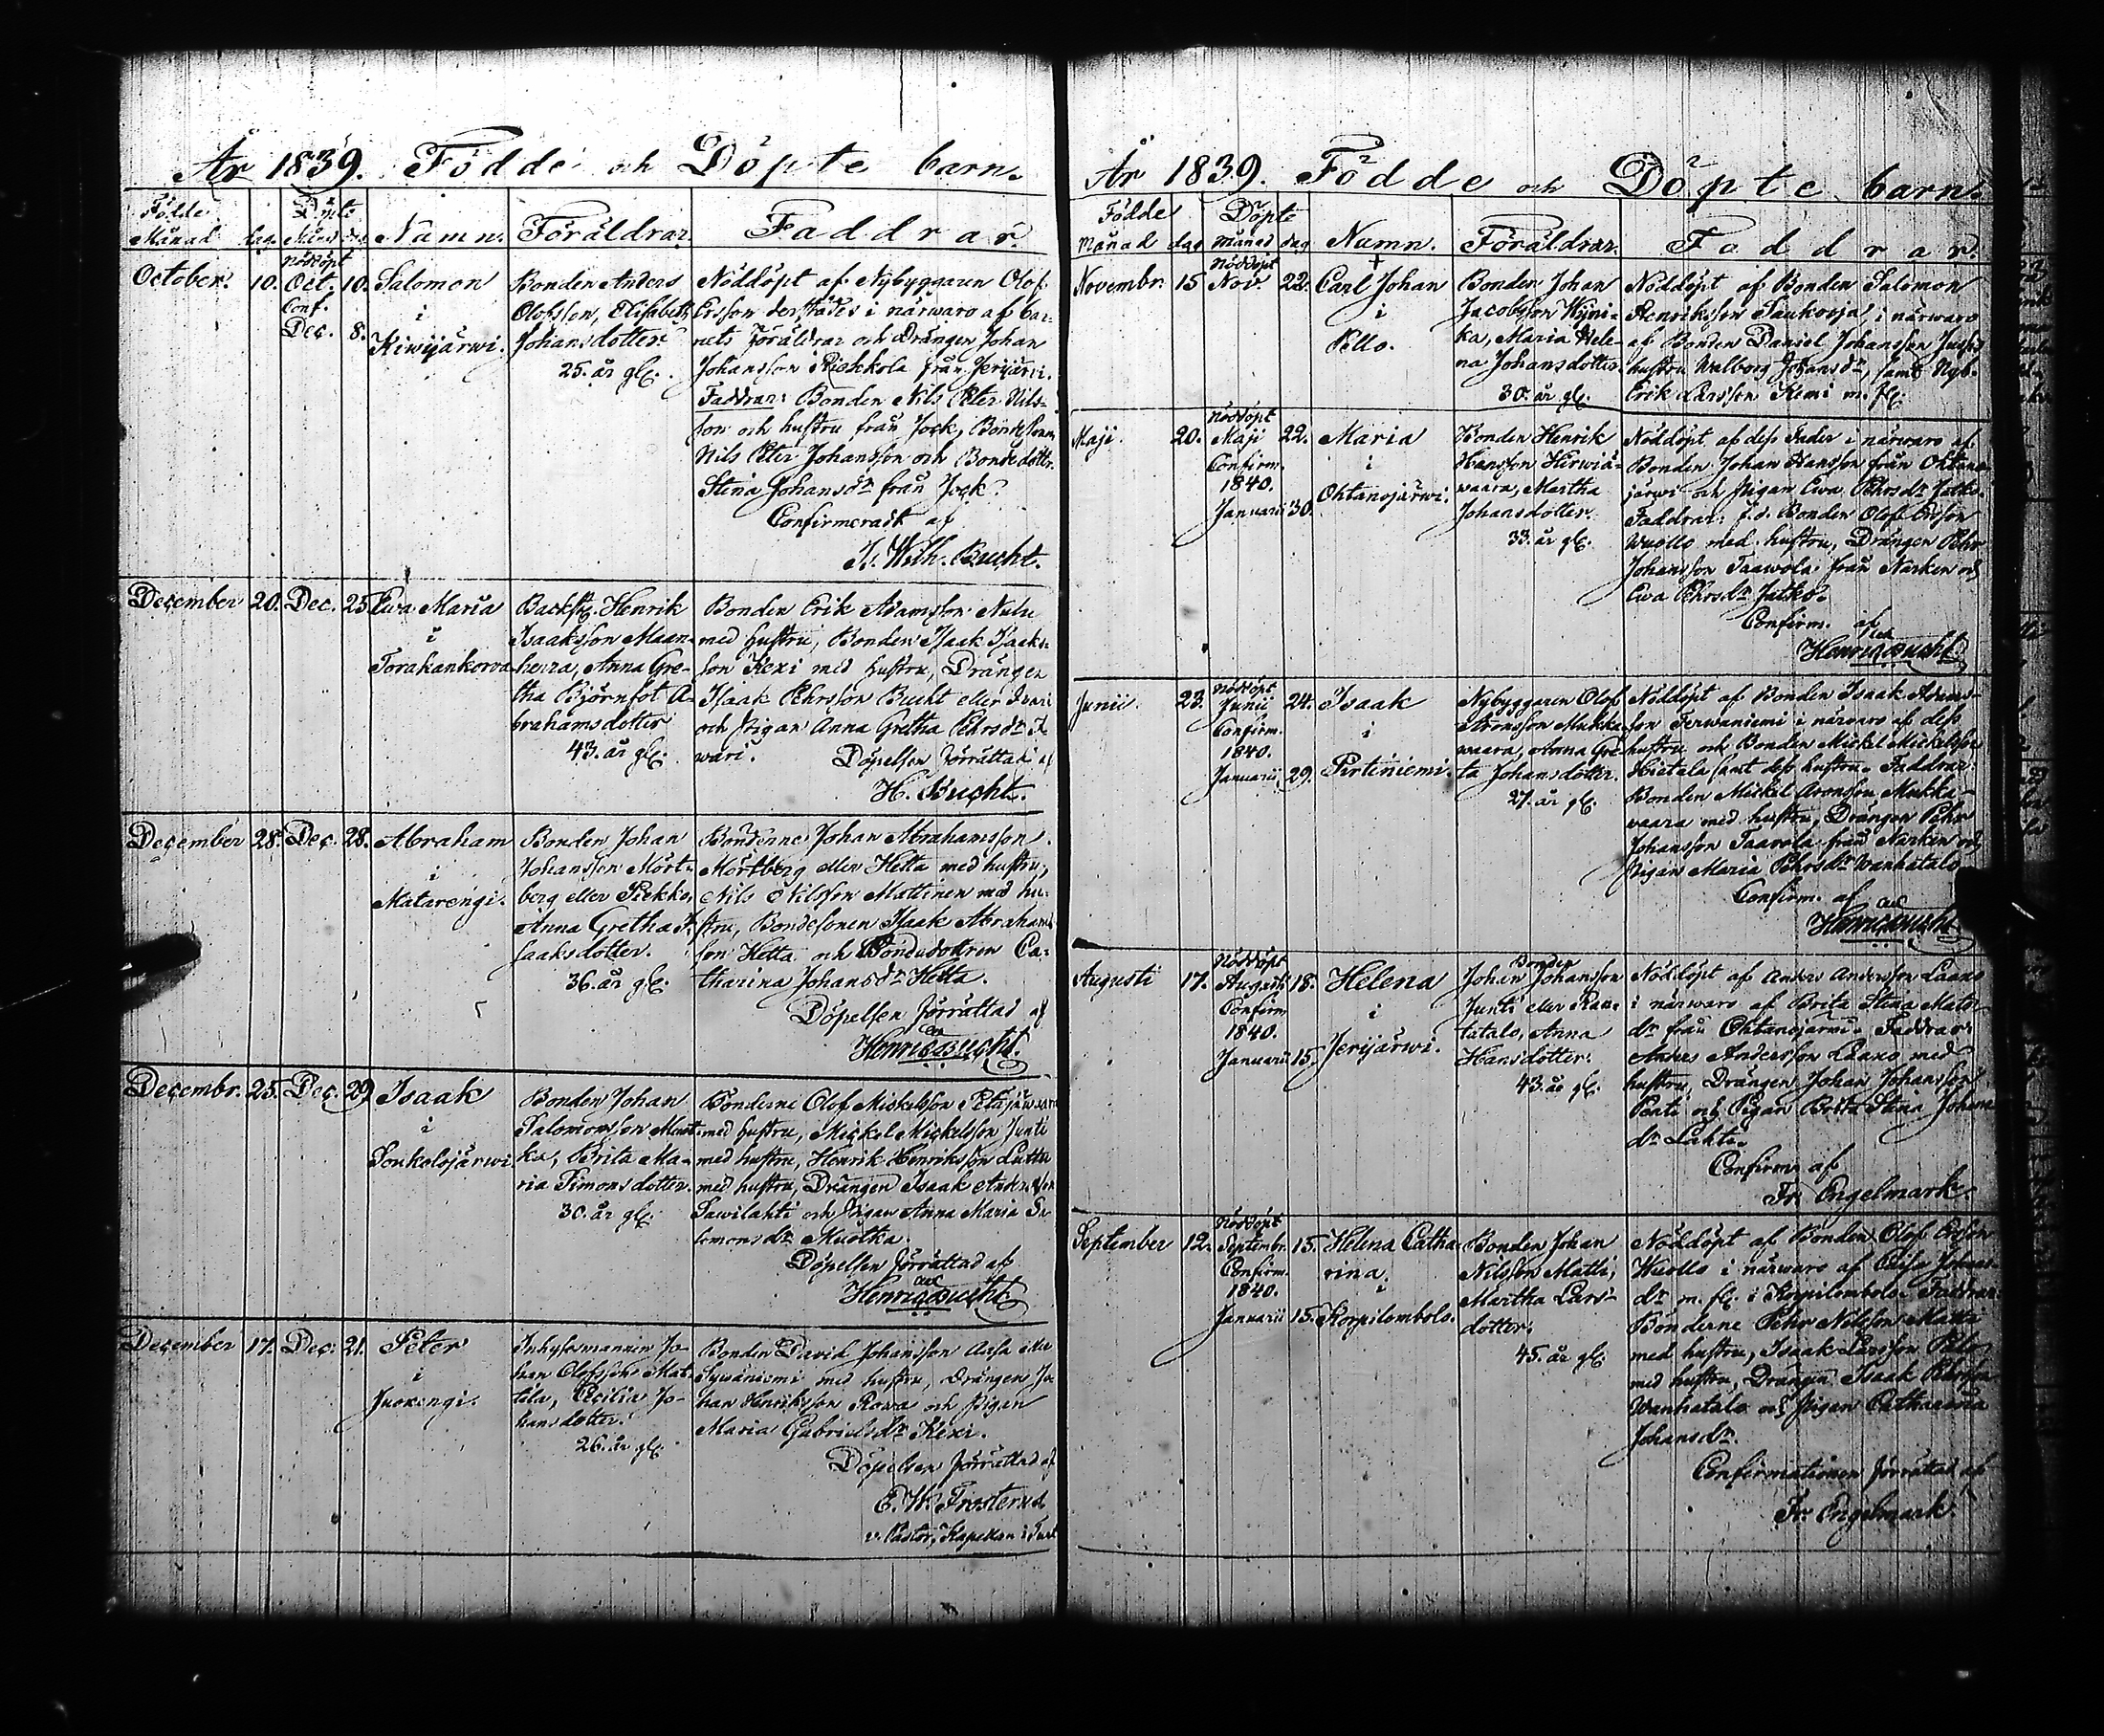 År 1839. Födde och Döpte barn.
Födde Månad dag. Döpte Månad dag Namn. Föräldrar. Faddrar.
October. 10. nöddöpt Oct. 10. Conf. Dec. 8.
Salomon
i
Kiwijärwi.
Bonden Anders
Olofsson, Elisabeth
Johansdotter
25. år gl.
Nöddöpt af Nybyggaren Olof
Ersson derstädes i närwaro af bar-
nets föräldrar och Drängen Johan
Johansson i Riskkola från Jerijärvi.
Faddrar: Bonden Nils Peter Nils-
son och hustru från Jock, Bondesonen
Nils Peter Johansson och Bondedottr.
Stina Johansdr från Jock.
Confirmeradt af
J. Wilh. Bucht.
December 20. Dec. 25.
Ewa Maria
i
Torakankorva
Backst. Henrik
Isaaksson Maan-
herra, Anna Gre-
tha Björnfot A-
brahamsdotter
43. år gl.
Bonden Erik Adamsson Nulu
med hustru, Bonden Isaak Isaaks-
son Kexi med hustru, Drängen
Isaak Pehrsson Bucht eller Iwari
och Pigan Anna Gretha Pehrsdr I-
wari. Döpelsen förrättad af
H. Bucht.
December 28. Dec. 28.
Abraham
i
Matarengi.
Bonden Johan
Johansson Mört-
berg eller Piekko,
Anna Gretha I-
saaksdotter.
36. år gl.
Bönderne Johan Abrahamsson
Mörtberg eller Hetta med hustru,
Nils Nilsson Mattinen med hu-
stru, Bondesonen Isaak Abrahams
son Hetta och Bondedottren Ca-
tharina Johansdr Hetta.
Döpelsen förrättad af
Henric Bucht.
Decembr. 25. Dec. 29
Isaak
i
Soukolojärwi
Bonden Johan
Salomonsson Muot-
ka, Brita Ma-
ria Simonsdotter.
30. år gl.
Bönderne Olof Mickelsson Petäjäwaara
med hustru, Mickel Mickelsson Junti
med hustru, Henrik Henriksson Luttu
med hustru, Drängen Isaak Andersson
Sawilahti och Pigan Anna Maria Sa
lomonsdr Muotka.
Döpelsen förrättad af
Henric Bucht
December 17. Dec. 21.
Peter
i
Juoxengi.
Inhysesmannen Jo-
han Olofsson Mat-
tila, Cecilia Jo-
hansdotter.
26. år gl.
Bonden David Johansson Aasa eller
Sywäniemi med hustru, Drängen Jo
han Henriksson Rowa och Pigan
Maria Gabrielsdr Kexi.
Döpelsen förrättad af
E. W. Frosterud
v. Pastor, Kapellan i Turt
År 1839. Födde och Döpte barn.
Födde månad dag Döpte månad dag Namn. Föräldrar. Faddrar.
Novembr. 15 nöddöpt Nov 22.
Carl Johan
i
Pello.
Bonden Johan
Jacobsson Wyni-
ka, Maria Hele-
na Johansdotter
30. år gl.
Nöddöpt af Bonden Salomon
Henriksson Saukoija, i närwaro
af Bonden Daniel Johansson
hustru Walborg Johansdr, samt Nyb.
Erik Larsson Kemi m. fl.
Maji. 20. nöddöpt Maji 22. Confirm. 1840. Januarii 30.
Maria
i
Ohtanojärwi.
Bonden Henrik
Hansson Hirwiä-
waara, Martha
Johansdotter.
33. år gl.
Nöddöpt af dess Fader i närwaro af
Bonden Johan Hansson från Ohtano
järwi och Pigan Ewa Pehrsdr Jatko.
Faddrar: f.d. Bonden Olof Ersson
Wuollo med hustru, Drängen Pehr
Johansson Taawola från Narken och
Ewa Pehrsdr Jatko.
Confirm. af
Henric Bucht
Junii. 23. nöddöpt Junii 24. Confirm. 1840. Januarii 29.
Isaak
i
Pirtiniemi.
Nybyggaren Olof
Aronsson Mukka-
waara, Anna Gre-
ta Johansdotter.
27. år gl.
Nöddöpt af Bonden Isaak Adams-
son Terwaniemi i närwaro af dess
hustru och Bonden Mickel Mickelsson
Hietala samt dess hustru. Faddrar:
Bonden Mickel Aronsson Mukka-
waara med hustru, Drängen Pehr
Johansson Taavola från Narken och
Pigan Maria Pehrsdr Wanhatalo
Confirm. af
Henric Bucht
Augusti 17. nöddöpt Augusti 18. Confirm 1840. Januarii 15.
Helena
i
Jerijärwi.
Bonden
Johan Johansson
Junti eller Ran-
tatalo, Anna
Hansdotter.
43. år gl.
Nöddöpt af Anders Andersson Laaxo
i närwaro af Brita Stina Mats-
dr från Ohtanojärwi. Faddrar:
Anders Andersson Laaxo med
hustru, Drängen Johan Johansson
Penti och Pigan Brita Stina Johans
dr Lahti.
Confirm. af
Fr. Engelmark.
September 12. nöddöpt Septembr. 15. Confirm. 1840. Januarii 15.
Helena Catha-
rina.
i
Korpilombolo.
Bonden Johan
Nilsson Matti,
Martha Lars-
dotter.
45. år gl.
Nöddöpt af Bonden Olof Ersson
Wuollo i närwaro af Caisa Johans-
dr m. fl. i Korpilombolo. Faddrar:
Bönderne Pehr Nilsson Matti
med hustru, Isaak Larsson Palo
med hustru, Drängen Isaak Pehrsson
Wanhatalo och Pigan Catharina
Johansdr.
Confirmationen förrättad af
Fr. Engelmark.